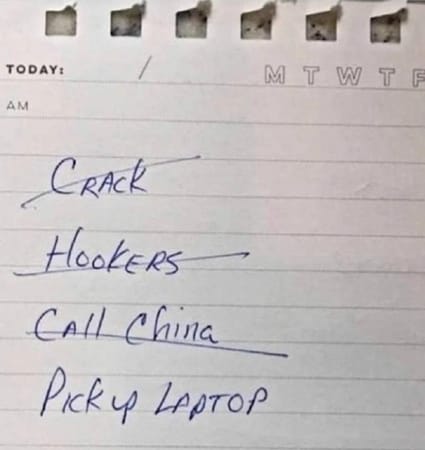 TODAY: / M T W T F
AM
CRACK
HOOKERS
CALL China
Pick up LAPTOP